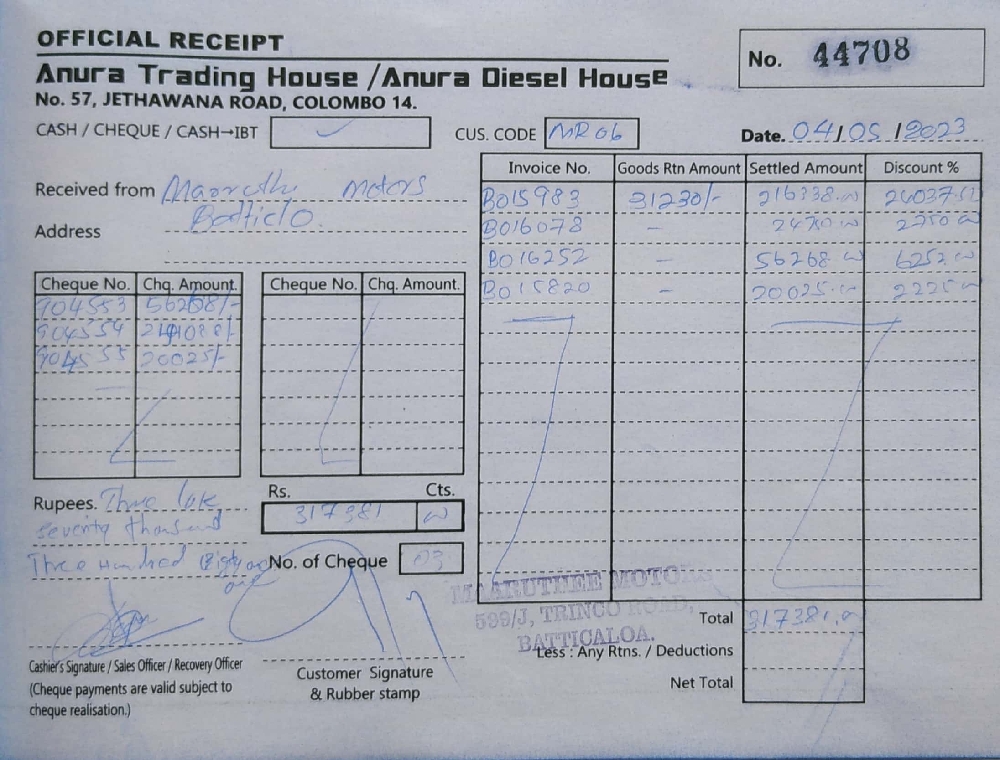 OFFICIAL RECEIPT
No. 44708
Anura Trading House /Anura Diesel House
No. 57, JETHAWANA ROAD, COLOMBO 14.
CASH / CHEQUE / CASH→IBT ✓ CUS. CODE MR 06 Date. 04/05/2023
Invoice No. Goods Rtn Amount Settled Amount Discount %
Received from Motors
Address
B015983 31230/- 216338.00
B016078 –
B016252 – 56268.00 6252.00
B015820 – 20025.00 2225.00
Cheque No. Chq. Amount. Cheque No. Chq. Amount.
904553 56268/-
904554
904555 20025/-
Rupees. Three
seventy thousand
Three Hundred
Rs. Cts.
317381 00
No. of Cheque 03
MAARUTHEE MOTORS
599/J, TRINCO ROAD,
BATTICALOA.
Total 317381.00
Less : Any Rtns. / Deductions
Net Total
Cashier's Signature / Sales Officer / Recovery Officer
(Cheque payments are valid subject to
cheque realisation.)
Customer Signature
& Rubber stamp